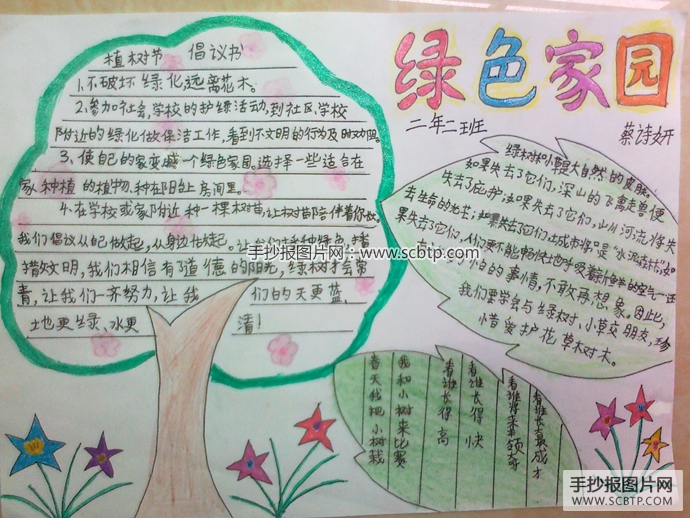 绿色家园
二年二班
蔡诗妍
植树节 倡议书
1.不破坏绿化,远离花木。
2.参加社会,学校的护绿活动,到社区,学校
附近的绿化做保洁工作,看到不文明的行为及时劝阻。
3、使自己的家变成一个绿色家园。选择一些适合在
家种植的植物,种在阳台上房间里。
4.在学校或家附近种一棵树苗,让树苗陪伴着你长
我们倡议从自己做起,从身边做起。让我们
播文明,我们相信有了道德的阳光,绿树才会常
青,让我们一齐努力,让我们的天更蓝
地更绿、水更清!
绿树和小草是大自然的皮肤,
如果失去了它们,深山的飞禽走兽便
失去了庇护;如果失去了它们,山川河流将失
去生命的光芒;如果失去了它们,城市将只是“水泥森林”;如
果失去了它们,人们更不能畅快地呼吸着新鲜的空气
的事情,不敢再想象。因此,
我们要学会与绿树,小草交朋友,珍
惜爱护花草树木。
春天我把小树栽
我和小树来比赛
看谁长得高
看谁长得快
看谁得来奇
看谁长最成才
手抄报图片网:www.scbtp.com
手抄报图片网
WWW.SCBTP.COM